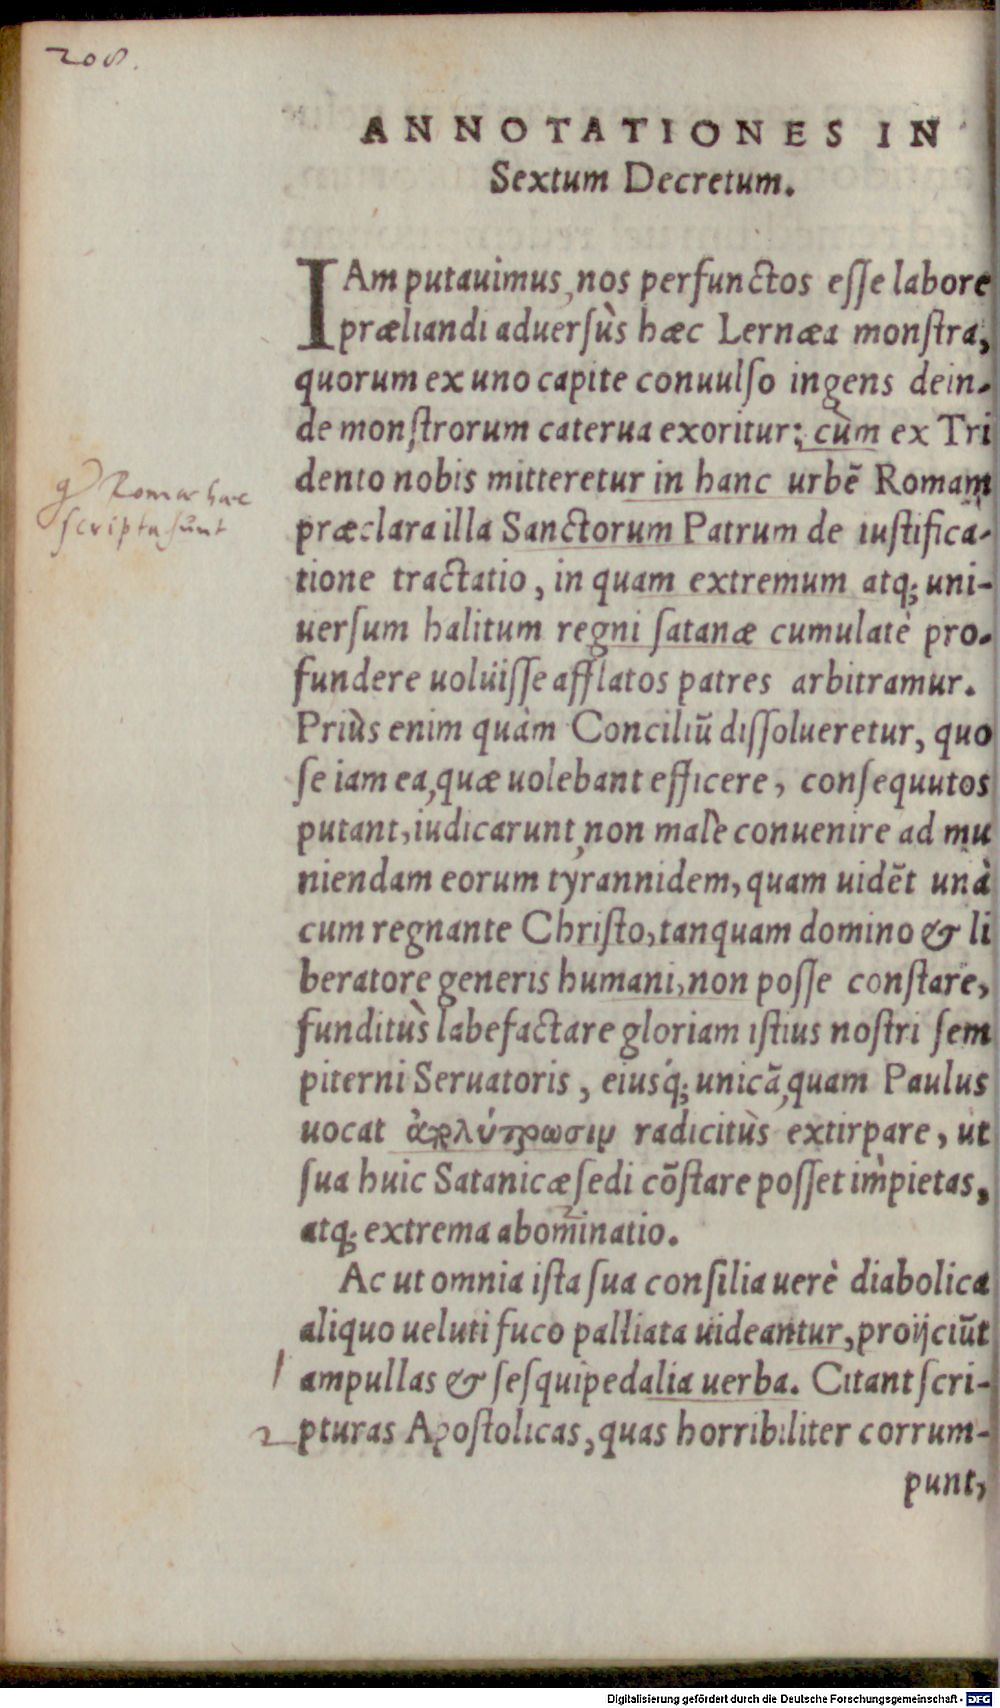 208.
ANNOTATIONES IN
Sextum Decretum.
IAm putauimus, nos perfunctos esse labore
præliandi aduersùs hæc Lernæa monstra,
quorum ex uno capite conuulso ingens dein-
de monstrorum caterua exoritur: cùm ex Tri
dento nobis mitteretur in hanc urbē Romam
præclara illa Sanctorum Patrum de iustifica-
tione tractatio, in quam extremum atq; uni-
uersum halitum regni satanæ cumulatè pro-
fundere uoluisse afflatos patres arbitramur.
Priùs enim quàm Conciliū dissolueretur, quo
se iam ea, quæ uolebant efficere, consequutos
putant, iudicarunt, non male conuenire ad mu
niendam eorum tyrannidem, quam uidēt unà
cum regnante Christo, tanquam domino & li
beratore generis humani, non posse constare,
funditùs labefactare gloriam istius nostri sem
piterni Seruatoris, eiusq́; unicā, quam Paulus
uocat ἀπολύτρωσιν radicitùs extirpare, ut
sua huic Satanicæ sedi cōstare posset impietas,
atq; extrema abominatio.
Ac ut omnia ista sua consilia uerè diabolica
aliquo ueluti fuco palliata uideantur, proijciūt
ampullas & sesquipedalia uerba. Citant scri-
pturas Apostolicas, quas horribiliter corrum-
punt,
Romae haec
scripta sunt
1
2
Digitalisierung gefördert durch die Deutsche Forschungsgemeinschaft - DFG